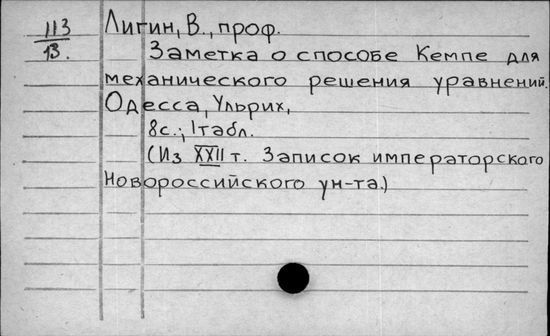 113 Лигин, В., проф.
13. Заметка о способе Кемпе для
механического решения уравнений.
Одесса, Ульрих,
8с.; 1 табл.
(Из XXII т. Записок императорского
Новороссийского ун-та.)